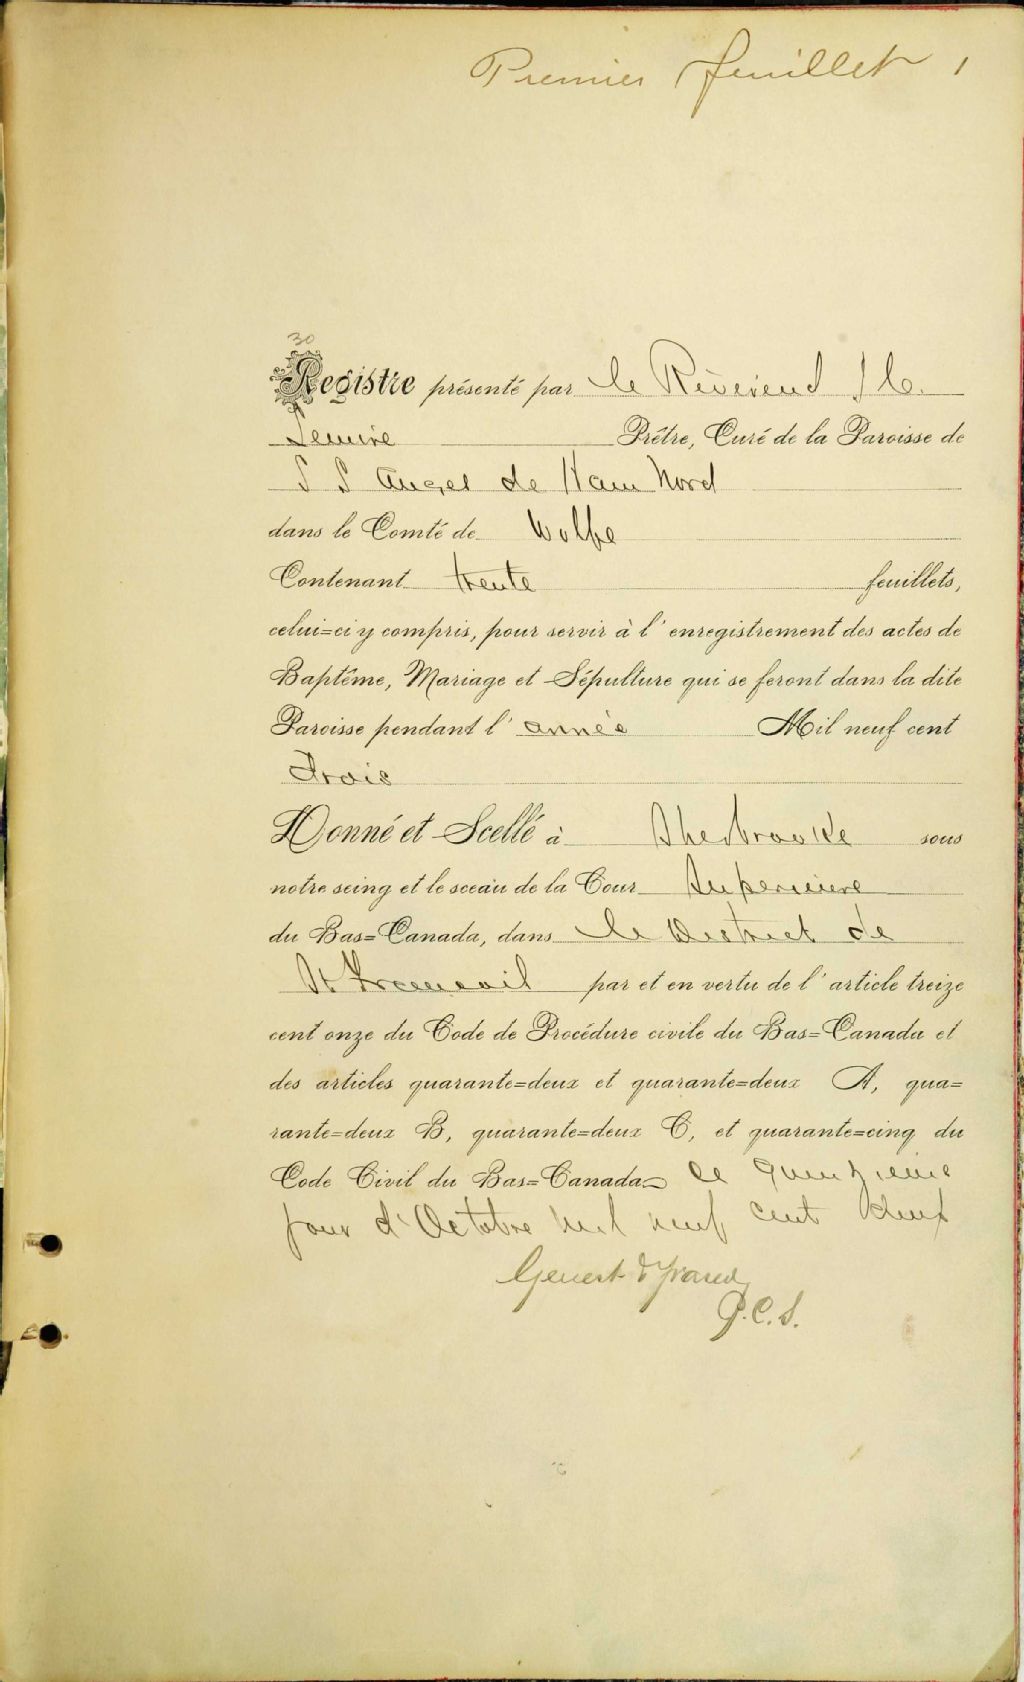 Premier feuillet 1
30
Registre présenté par le Révérend J C.
Lemire Prêtre, Curé de la Paroisse de
S S Anges de Ham Nord
dans le Comté de Wolfe
Contenant trente feuillets,
celui=ci y compris, pour servir à l'enregistrement des actes de
Baptême, Mariage et Sépulture qui se feront dans la dite
Paroisse pendant l'année Mil neuf cent
Trois
Donné et Scellé à Sherbrooke sous
notre seing et le sceau de la Cour Superieure
du Bas=Canada, dans le District de
St Francois par et en vertu de l'article treize
cent onze du Code de Procédure civile du Bas=Canada et
des articles quarante=deux et quarante=deux A, qua=
rante=deux B, quarante=deux C, et quarante=cinq du
Code Civil du Bas=Canada ce quinzieme
jour d'Octobre mil neuf cent deux
P.C.S.